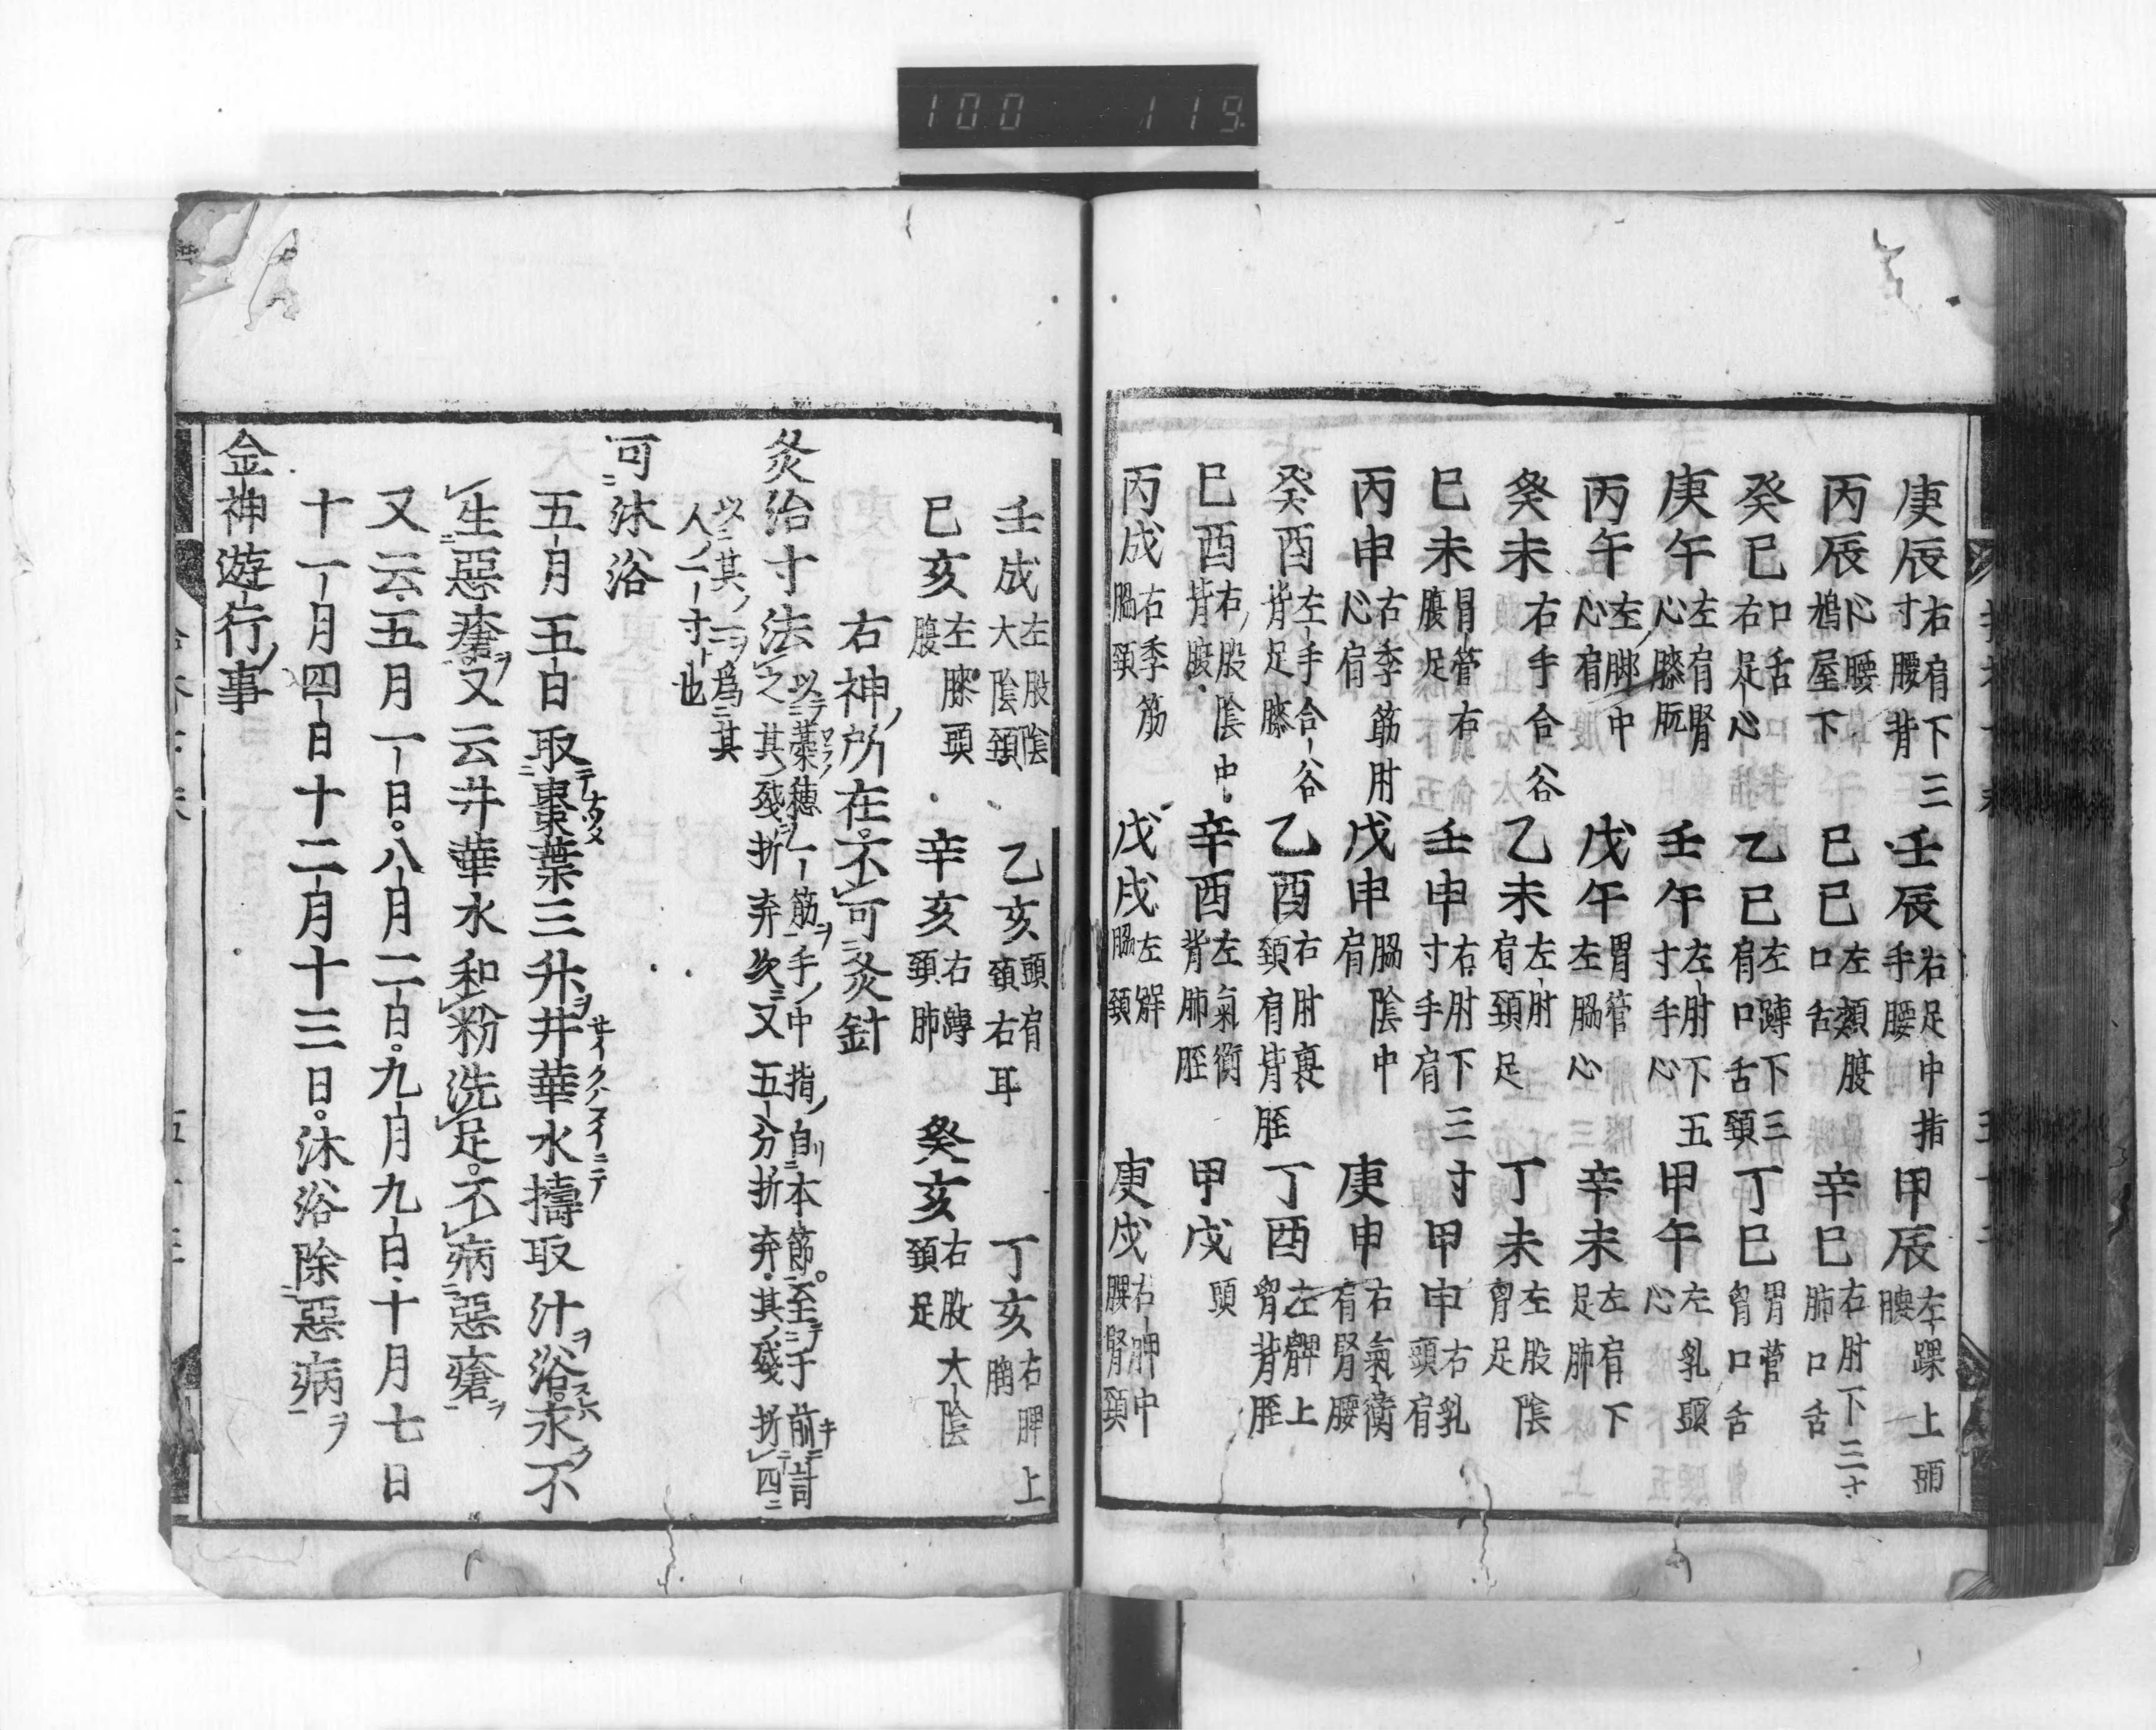 100 119
庚辰 右肩下三寸腰背 壬辰 右足中指手腰 甲辰 左踝上頭腰
丙辰 心腰鳩屋下 己巳 左頬腹口舌 辛巳 右肘下三寸肺口舌
癸巳 口舌右足心 乙巳 左踵下三肩口舌頚 丁巳 胃菅胷口舌
庚午 左肩腎心膝 壬午 左肘下五寸手心 甲午 左乳頭心
丙午 左脚中心肩 戊午 胃管左脇心 辛未 左肩下足肺
癸未 右手合谷 乙未 左肘肩頚足 丁未 左股陰胷足
己未 胃管右腹足 壬申 右肘下三寸手肩 甲申 右乳頭肩
丙申 右季筋肘心肩 戊申 脇陰中肩 庚申 右氣衝肩腎腰
癸酉 左手合谷背足膝 乙酉 右肘裏頚肩背脛 丁酉 左髀上胷背脛
己酉 右股陰中背 辛酉 左氣衝背肺脛 甲戌 頭
丙戌 右季筋脇頚 戊戌 左髀脇頚 庚戌 右胛中腰腎頚
壬戌 左股陰大陰頚 乙亥 頭肩頚右耳 丁亥 右脾上胸
己亥 左膝頭腹 辛亥 右蹲頚肺 癸亥 右股大陰頚足
右神ノ所在不可灸針
灸治寸法 以藁穂一筋ヲ手ノ中指ノ自本節至于前計之其ノ殘折弃次又五分折弃其ノ殘折四
以其ノ一ヲ爲其人ノ一寸也
可沐浴
五月五日取棗葉三升ヲ井華水擣取汁ヲ浴永ク不
生惡瘡ヲ又云井華水和粉洗足不病惡瘡ヲ
又云五月一日。八月二日。九月九日十月七日
十一月四日十二月十三日。沐浴除惡病ヲ
金神遊行ノ事